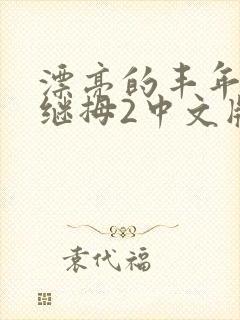 漂亮的丰年
继拇2中文版
袁代福